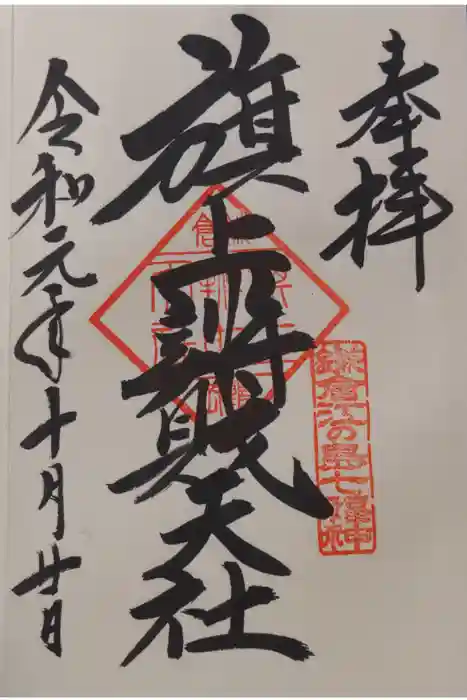 奉拝
旗上辨財天社
令和元年十月廿日
鎌倉江の島七福神